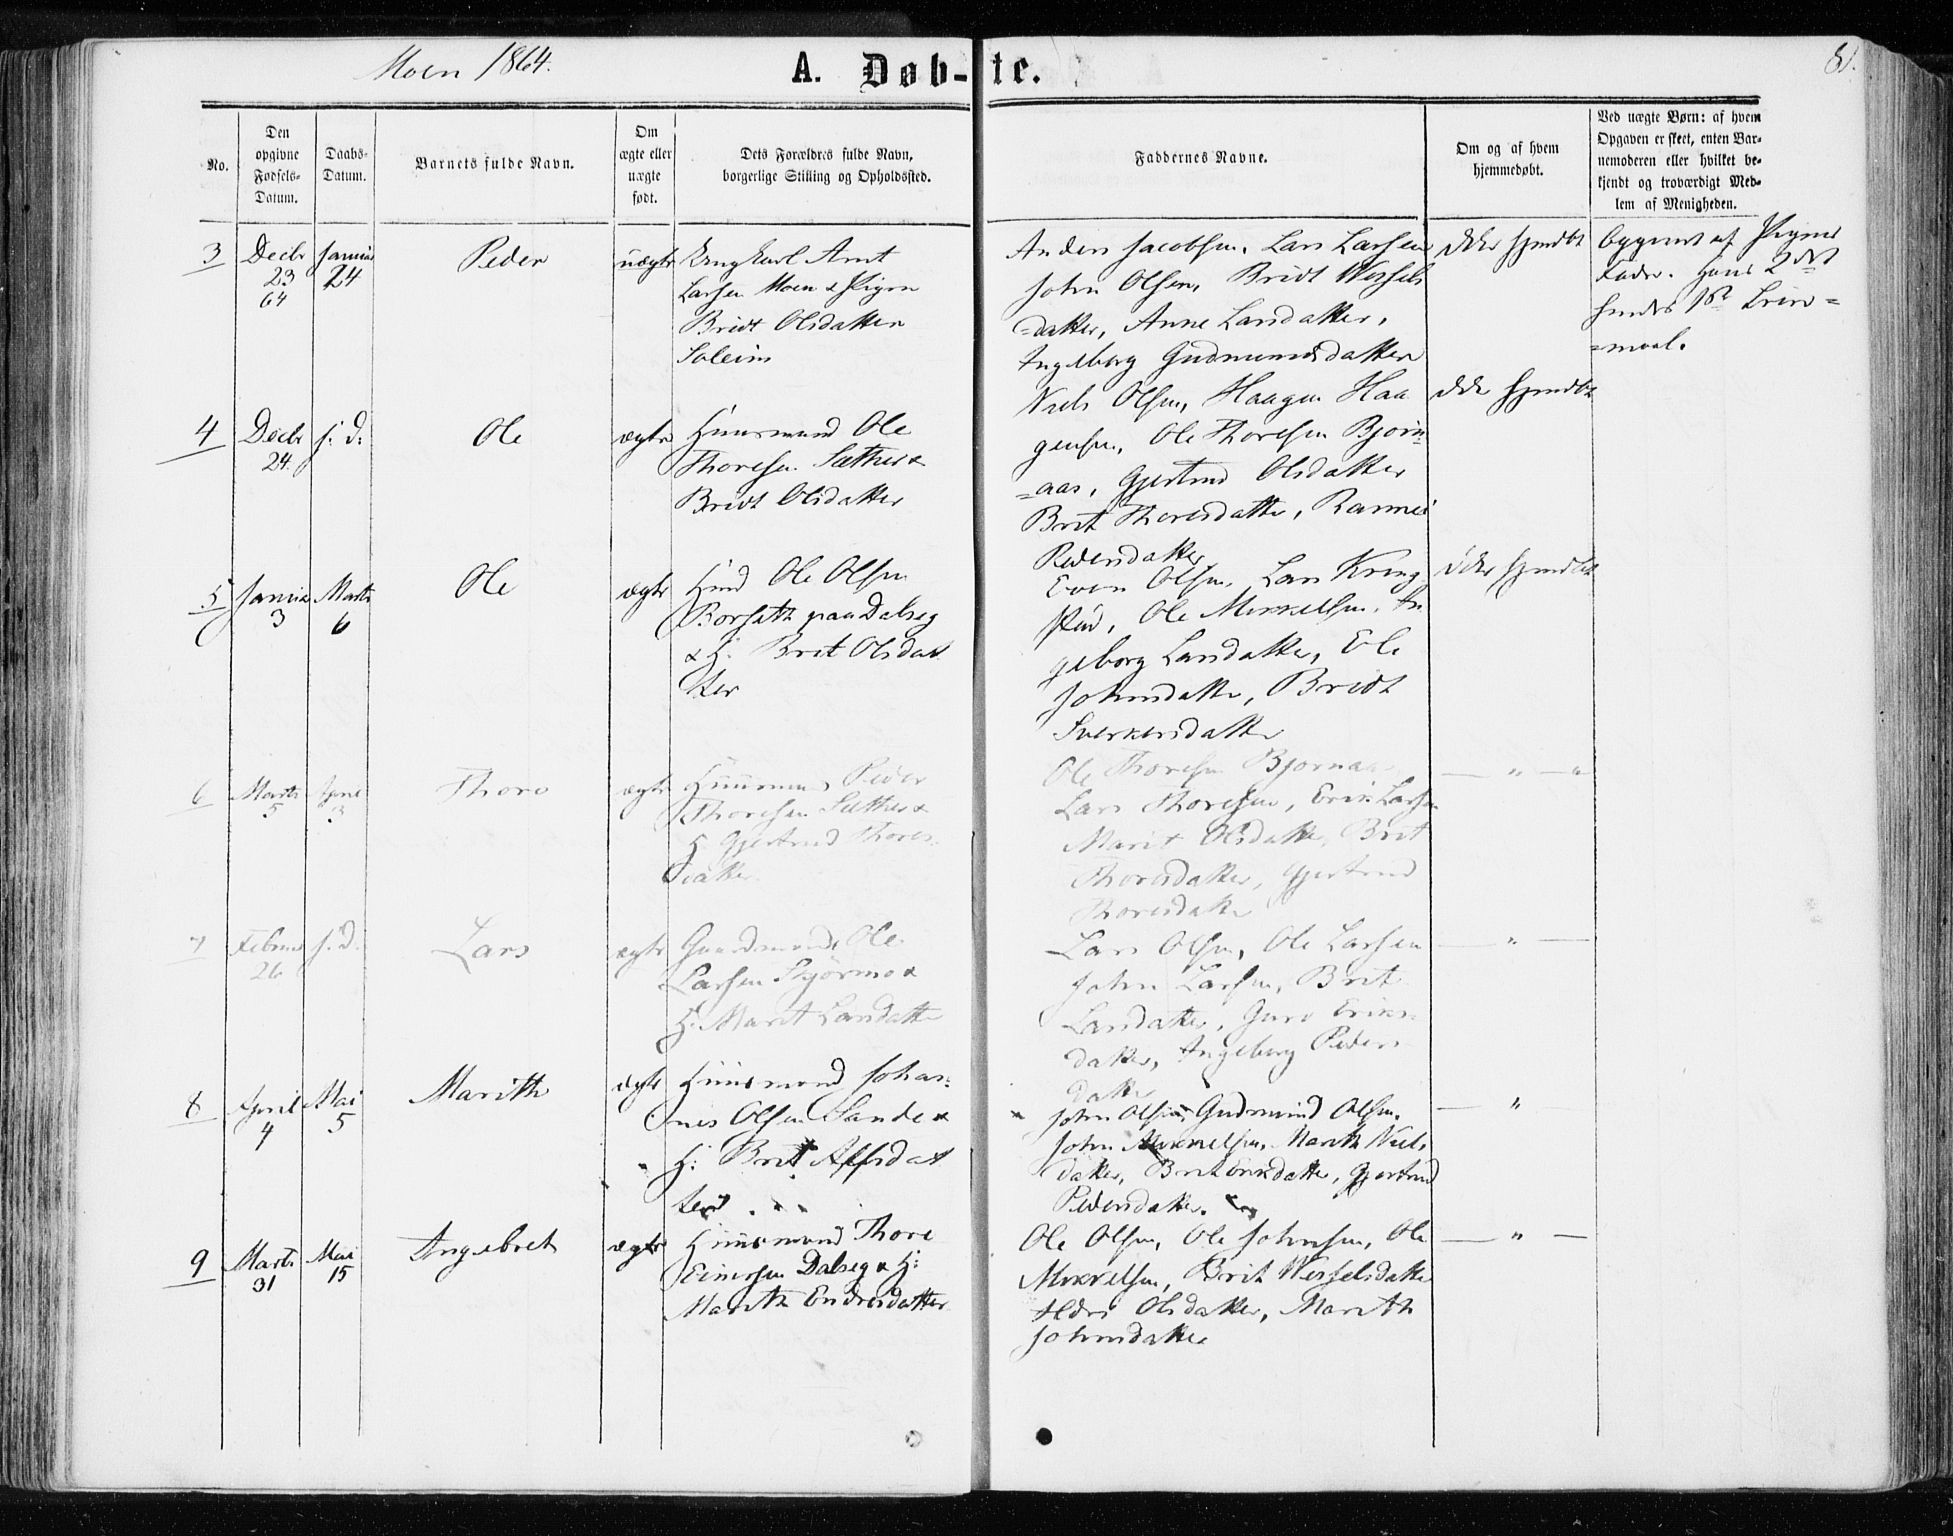 Moen 1864.
A. Døb-te.
81.
No.
Den
opgivne
Fødsels-
Datum.
Daabs-
Datum.
Barnets fulde Navn.
Om
ægte eller
uægte
født.
Dets Forældres fulde Navn,
borgerlige Stilling og Opholdssted.
Faddernes Navne.
Om og af hvem
hjemmedøbt.
Ved uægte Børn: af hvem
Opgaven er skeet, enten Bar-
nemoderen eller hvilket be-
kjendt og troværdigt Med-
lem af Menigheden.
3
Decbr
23
64
Januar
24
Peder
uægte
Ungkarl Arnt
Larsen Moen & Pigen
Bridt Olsdatter
Soleim
Anders Jacobsen, Lars Larsen
John Olsen, Bridt Wessels
=datter, Anne Larsdatter,
Ingeborg Gudmundsdatter
ikke hjmdbt
Opgivet af Pigens
Fader. Hans 2det
hendes 1ste Leier=
=maal.
4
Decbr
24
s: d:
Ole
ægte
Huusmand Ole
Thoresen Sæther &
Bridt Olsdatter
Niels Olsen, Haagen Haa
gensen, Ole Thoresen Bjørn=
=aas, Gjertrud Olsdatter
Brit Thoresdatter, Rannei
Pedersdatter
ikke hjmdbt
5
Januar
3
Marts
6
Ole
ægte
Hmd Ole Olsen
Borsæth paa Dalseg
& H: Brit Olsdat
ter
Even Olsen, Lars Kring
Ole Mikkelsen, In
geborg Larsdatter, Ele
Johnsdatter, Bridt
Sverkersdatter
ikke hjmdbt
6
Marts
5
April
3
Thore
ægte
Huusmand Peder
Thoresen Sæther &
H: Gjertrud Thores
datter
Ole Thoresen Bjørnaa
Lars Thoresen, Erik Larsen
Marit Olsdatter, Brit
Thoresdatter, Gjertrud
Thoresdatter
— " — "
7
Februar
26
s: d.
Lars
ægte
Gaardmand Ole
Larsen Skjørmo &
H: Marit Larsdatter
Lars Olsen, Ole Larsen
John Larsen, Brit
Larsdatter, Guro Eriks
datter, Ingeborg Peders
datter
— " —
8
April
4
Mai
5
Marith
ægte
Huusmand Johan=
nes Olsen Sande &
H: Brit Alfsdat
ter
John Olsen, Gudmund Olsen,
John Mikkelsen, Marith Niels
datter, Brit Eriksdatter, Gjertrud
Pedersdatter.
— "
9
Marts
31
Mai
15
Ingebret
ægte
Huusmand Thore
Einersen Dalseg & H:
Marith Endresdatter
Ole Olsen, Ole Johnsen, Ole
Mikkelsen, Brit Wesselsdatter
Olsdatter, Marith
Johnsdatter
— " —